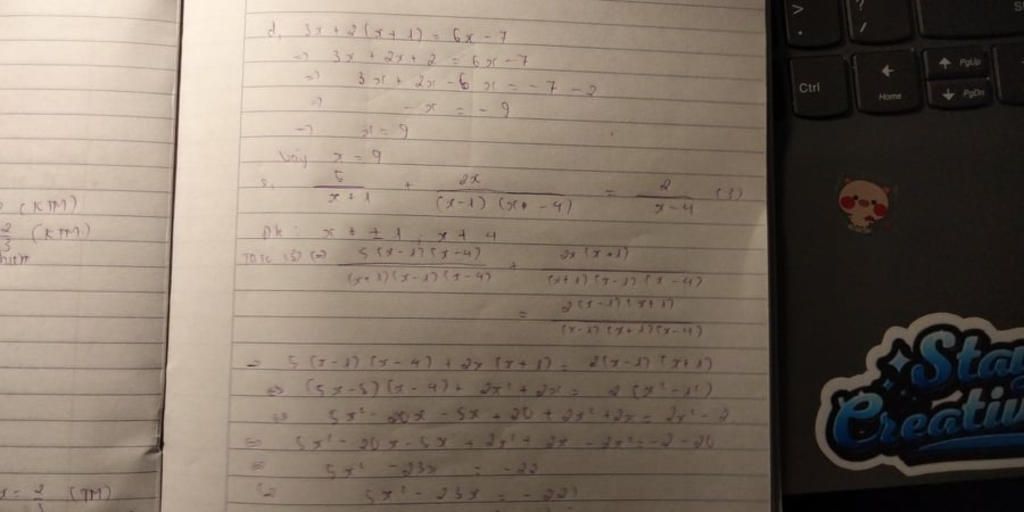 d, 3x + 2(x + 1) = 6x - 7
=> 3x + 2x + 2 = 6x - 7
=> 3x + 2x - 6x = -7 - 2
=> -x = -9
=> x = 9
Vậy x = 9
5/(x + 1) + 2x/((x-1)(x-4)) = 2/(x-4)
ĐK: x ≠ ±1, x ≠ 4
5(x-1)(x-4)/((x+1)(x-1)(x-4)) + 2x(x+1)/((x+1)(x-1)(x-4))
= 2(x-1)(x+1)/((x-1)(x+1)(x-4))
=> 5(x-1)(x-4) + 2x(x+1) = 2(x-1)(x+1)
<=> (5x-5)(x-4) + 2x² + 2x = 2(x²-1²)
<=> 5x² - 20x - 5x + 20 + 2x² + 2x = 2x² - 2
<=> 5x² - 20x - 5x + 2x² + 2x - 2x² = -2 - 20
<=> 5x² - 23x = -22
<=> 5x² - 23x = -22
(KTM)
2/3 (KTM)
(TM)
Ctrl
Home
PgUp
PgDn
Creativ